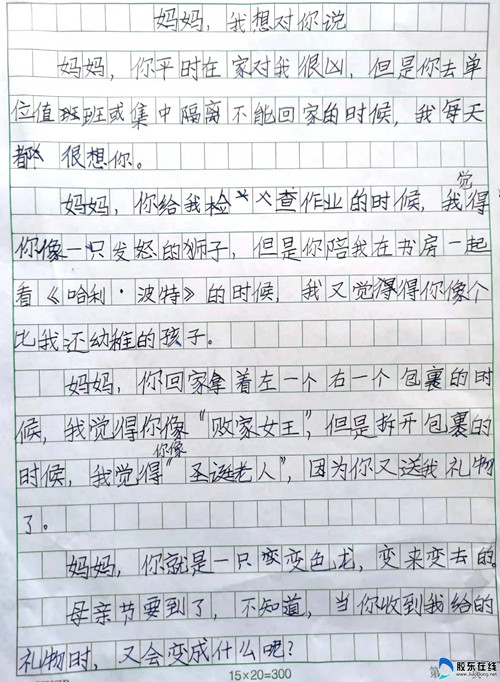 妈妈，我想对你说
妈妈，你平时在家对我很凶，但是你去单
位值班班或集中隔离不能回家的时候，我每天
都很想你。
妈妈，你给我检查作业的时候，我觉得
你像一只发怒的狮子，但是你陪我在书房一起
看《哈利·波特》的时候，我又觉得得你像个
比我还幼稚的孩子。
妈妈，你回家拿着左一个右一个包裹的时
候，我觉得你像“败家女王”，但是拆开包裹的
时候，我觉得你像“圣诞老人”，因为你又送我礼物
了。
妈妈，你就是一只变变色龙，变来变去的。
母亲节要到了，不知道，当你收到我给的
礼物时，又会变成什么呢？
15×20=300
第
胶东在线
www.jiaodong.net